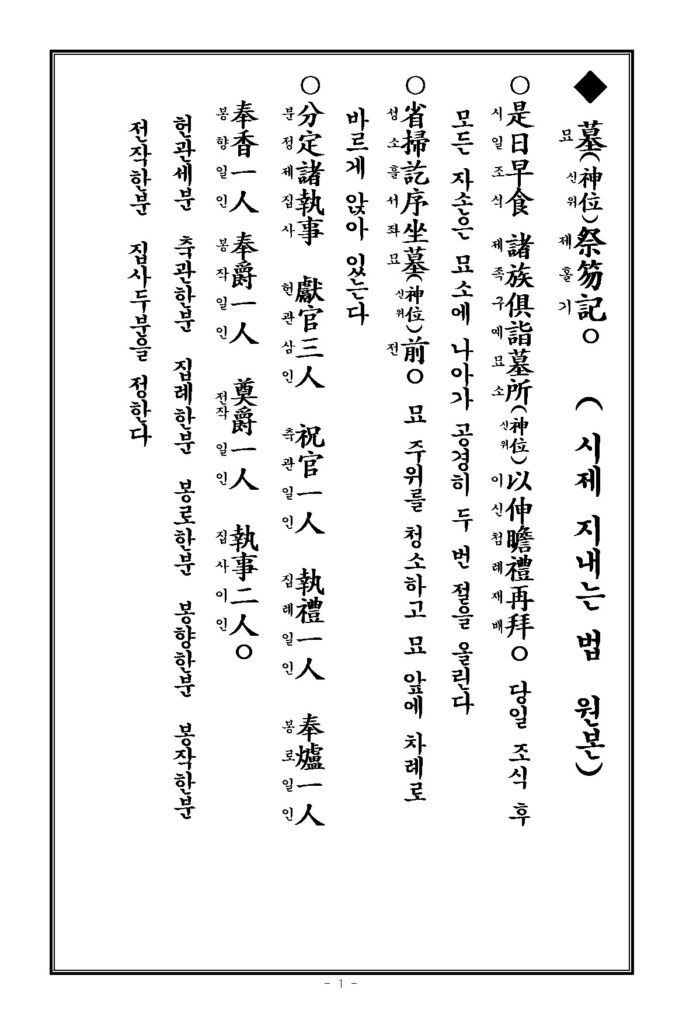 ◆ 墓(神位)祭笏記○ ( 시제 지내는 법 원본)
묘 신위 제홀기
○是日早食 諸族俱詣墓所(神位)以伸瞻禮再拜○ 당일 조식 후
시일조식 제족구예묘소 신위 이신첨례재배
모든 자손은 묘소에 나아가 공경히 두 번 절을 올린다
○省掃訖序坐墓(神位)前○ 묘 주위를 청소하고 묘 앞에 차례로
섭소흘서좌묘 신위 전
바르게 앉아 있는다
○分定諸執事 獻官三人 祝官一人 執禮一人 奉爐一人
분정제집사 헌관삼인 축관일인 집례일인 봉로일인
奉香一人 奉爵一人 奠爵一人 執事二人○
봉향일인 봉작일인 전작일인 집사이인
헌관세분 축관한분 집례한분 봉로한분 봉향한분 봉작한분
전작한분 집사두분을 정한다
- 1 -